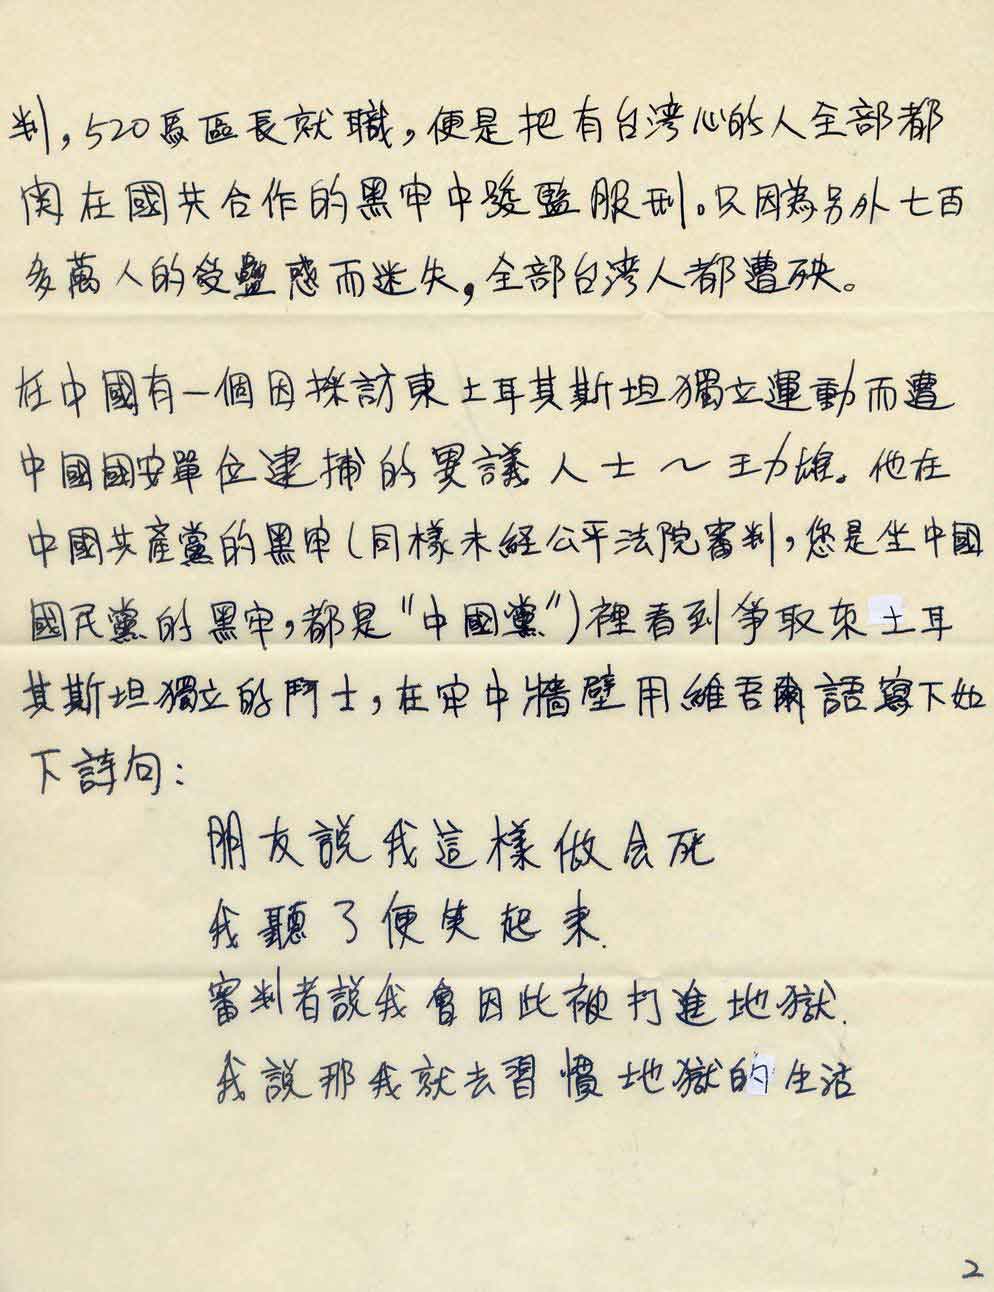 判，520馬區長就職，便是把有台湾心的人全部都
関在國共合作的黑牢中發監服刑。只因為另外七百
多萬人的受蠱惑而迷失，全部台湾人都遭殃。
在中國有一個因採訪東土耳其斯坦獨立運動而遭
中國國安單位逮捕的異議人士～王力雄。他在
中國共產黨的黑牢(同樣未經公平法院審判，您是坐中國
國民黨的黑牢，都是"中國黨")裡看到爭取東土耳
其斯坦獨立的鬥士，在牢中牆壁用維吾爾語寫下如
下詩句：
朋友說我這樣做会死
我聽了便笑起來.
審判者說我會因此被打進地獄.
我說那我就去習慣地獄的生活
2